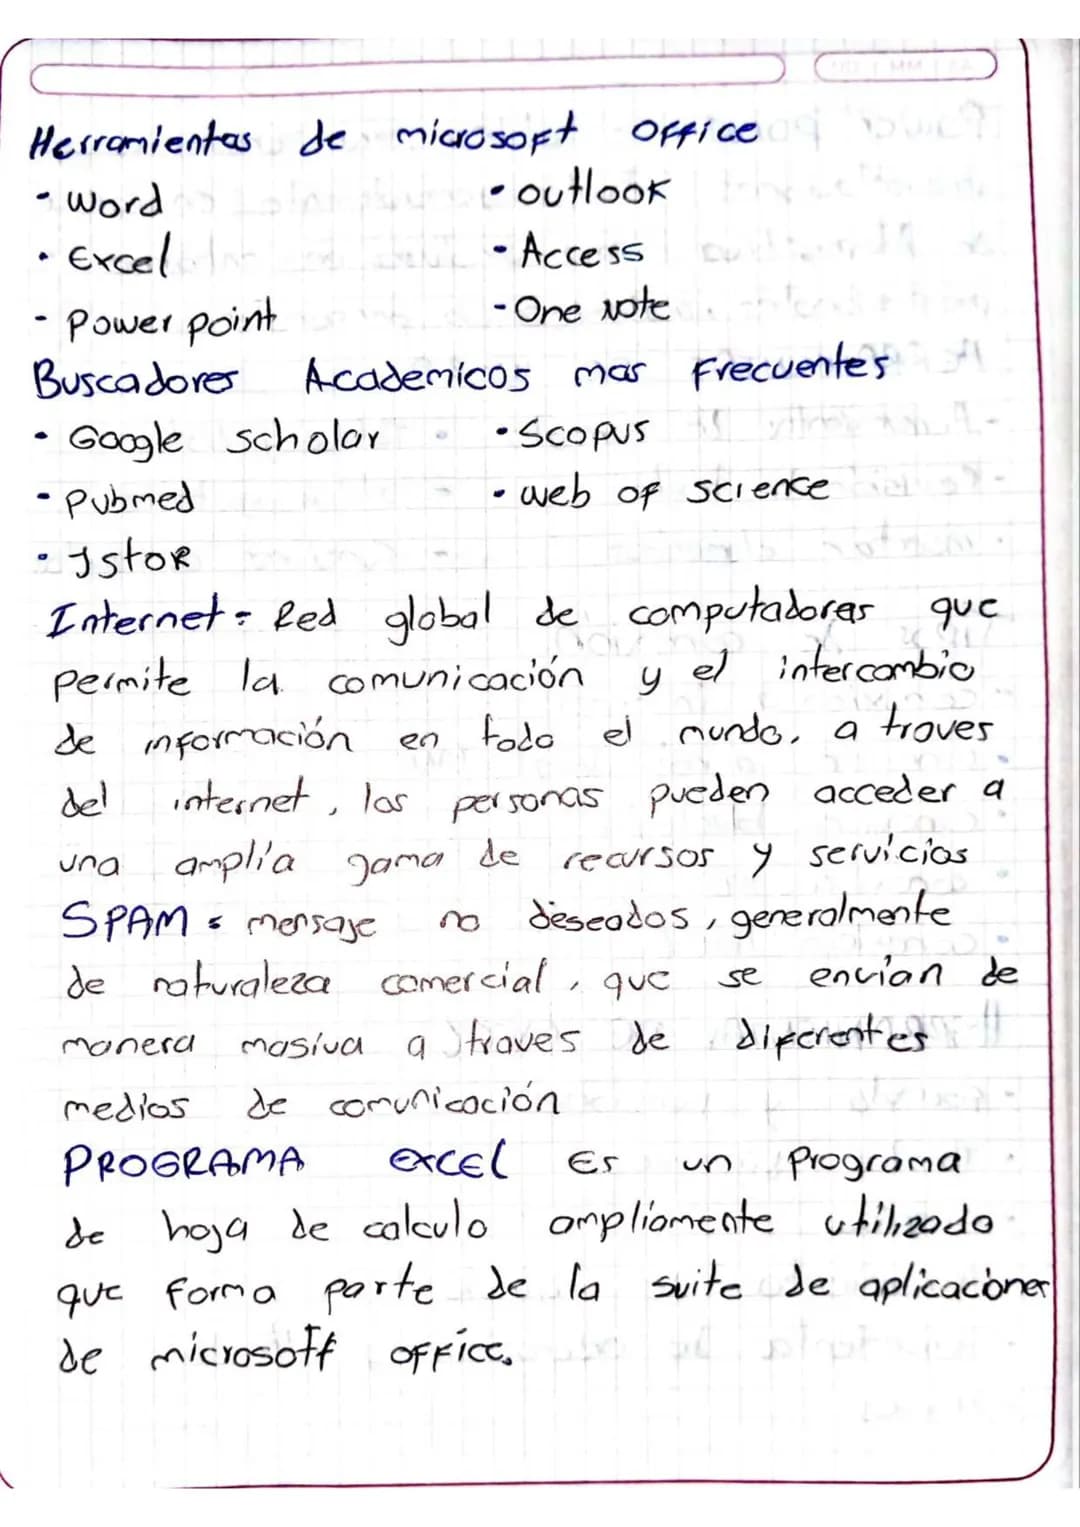 Herramientas de microsoft office
- word
• outlook
• Excel
- Access
- Power point
- One Note
Buscadores Academicos mas Frecuentes
• Google scholar
• Scopus
- Pubmed
• web of science
• Jstor
Internet = Red global de computadoras que
permite la comunicación y el intercambio
de información en todo el mundo. a traves
del internet, las personas pueden acceder a
una amplia gama de recursos y servicios
SPAM = mensaje no deseados, generalmente
de naturaleza comercial, que se envian de
manera masiva a traves de diferentes
medios de comunicación
PROGRAMA EXCEL Es un Programa
de hoja de calculo ampliamente utilizado
que forma parte de la suite de aplicaciones
de microsoft office.